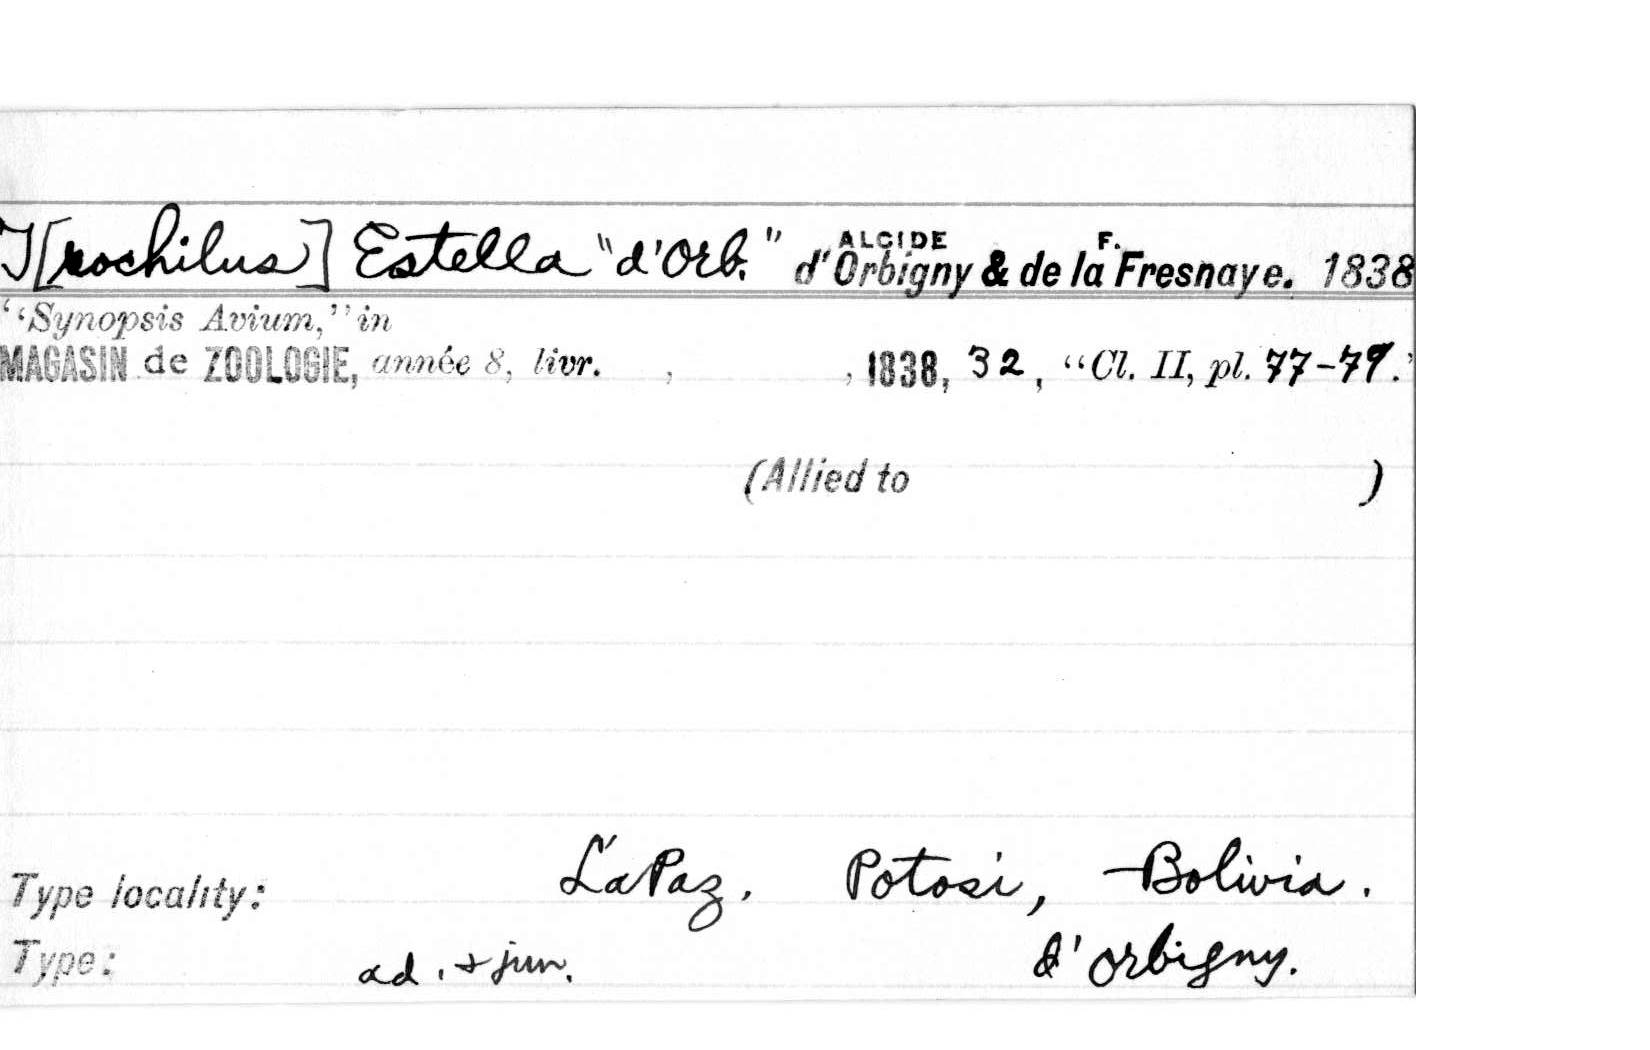 T[rochilus] Estella "d'Orb." d'Orbigny & de la Fresnaye. 1838
ALCIDE F.
"Synopsis Avium," in
MAGASIN de ZOOLOGIE, année 8, livr. , , 1838, 32, "Cl. II, pl. 77-79."
(Allied to )
Type locality: La Paz. Potosi, Bolivia.
Type: ad. & jun. d'Orbigny.